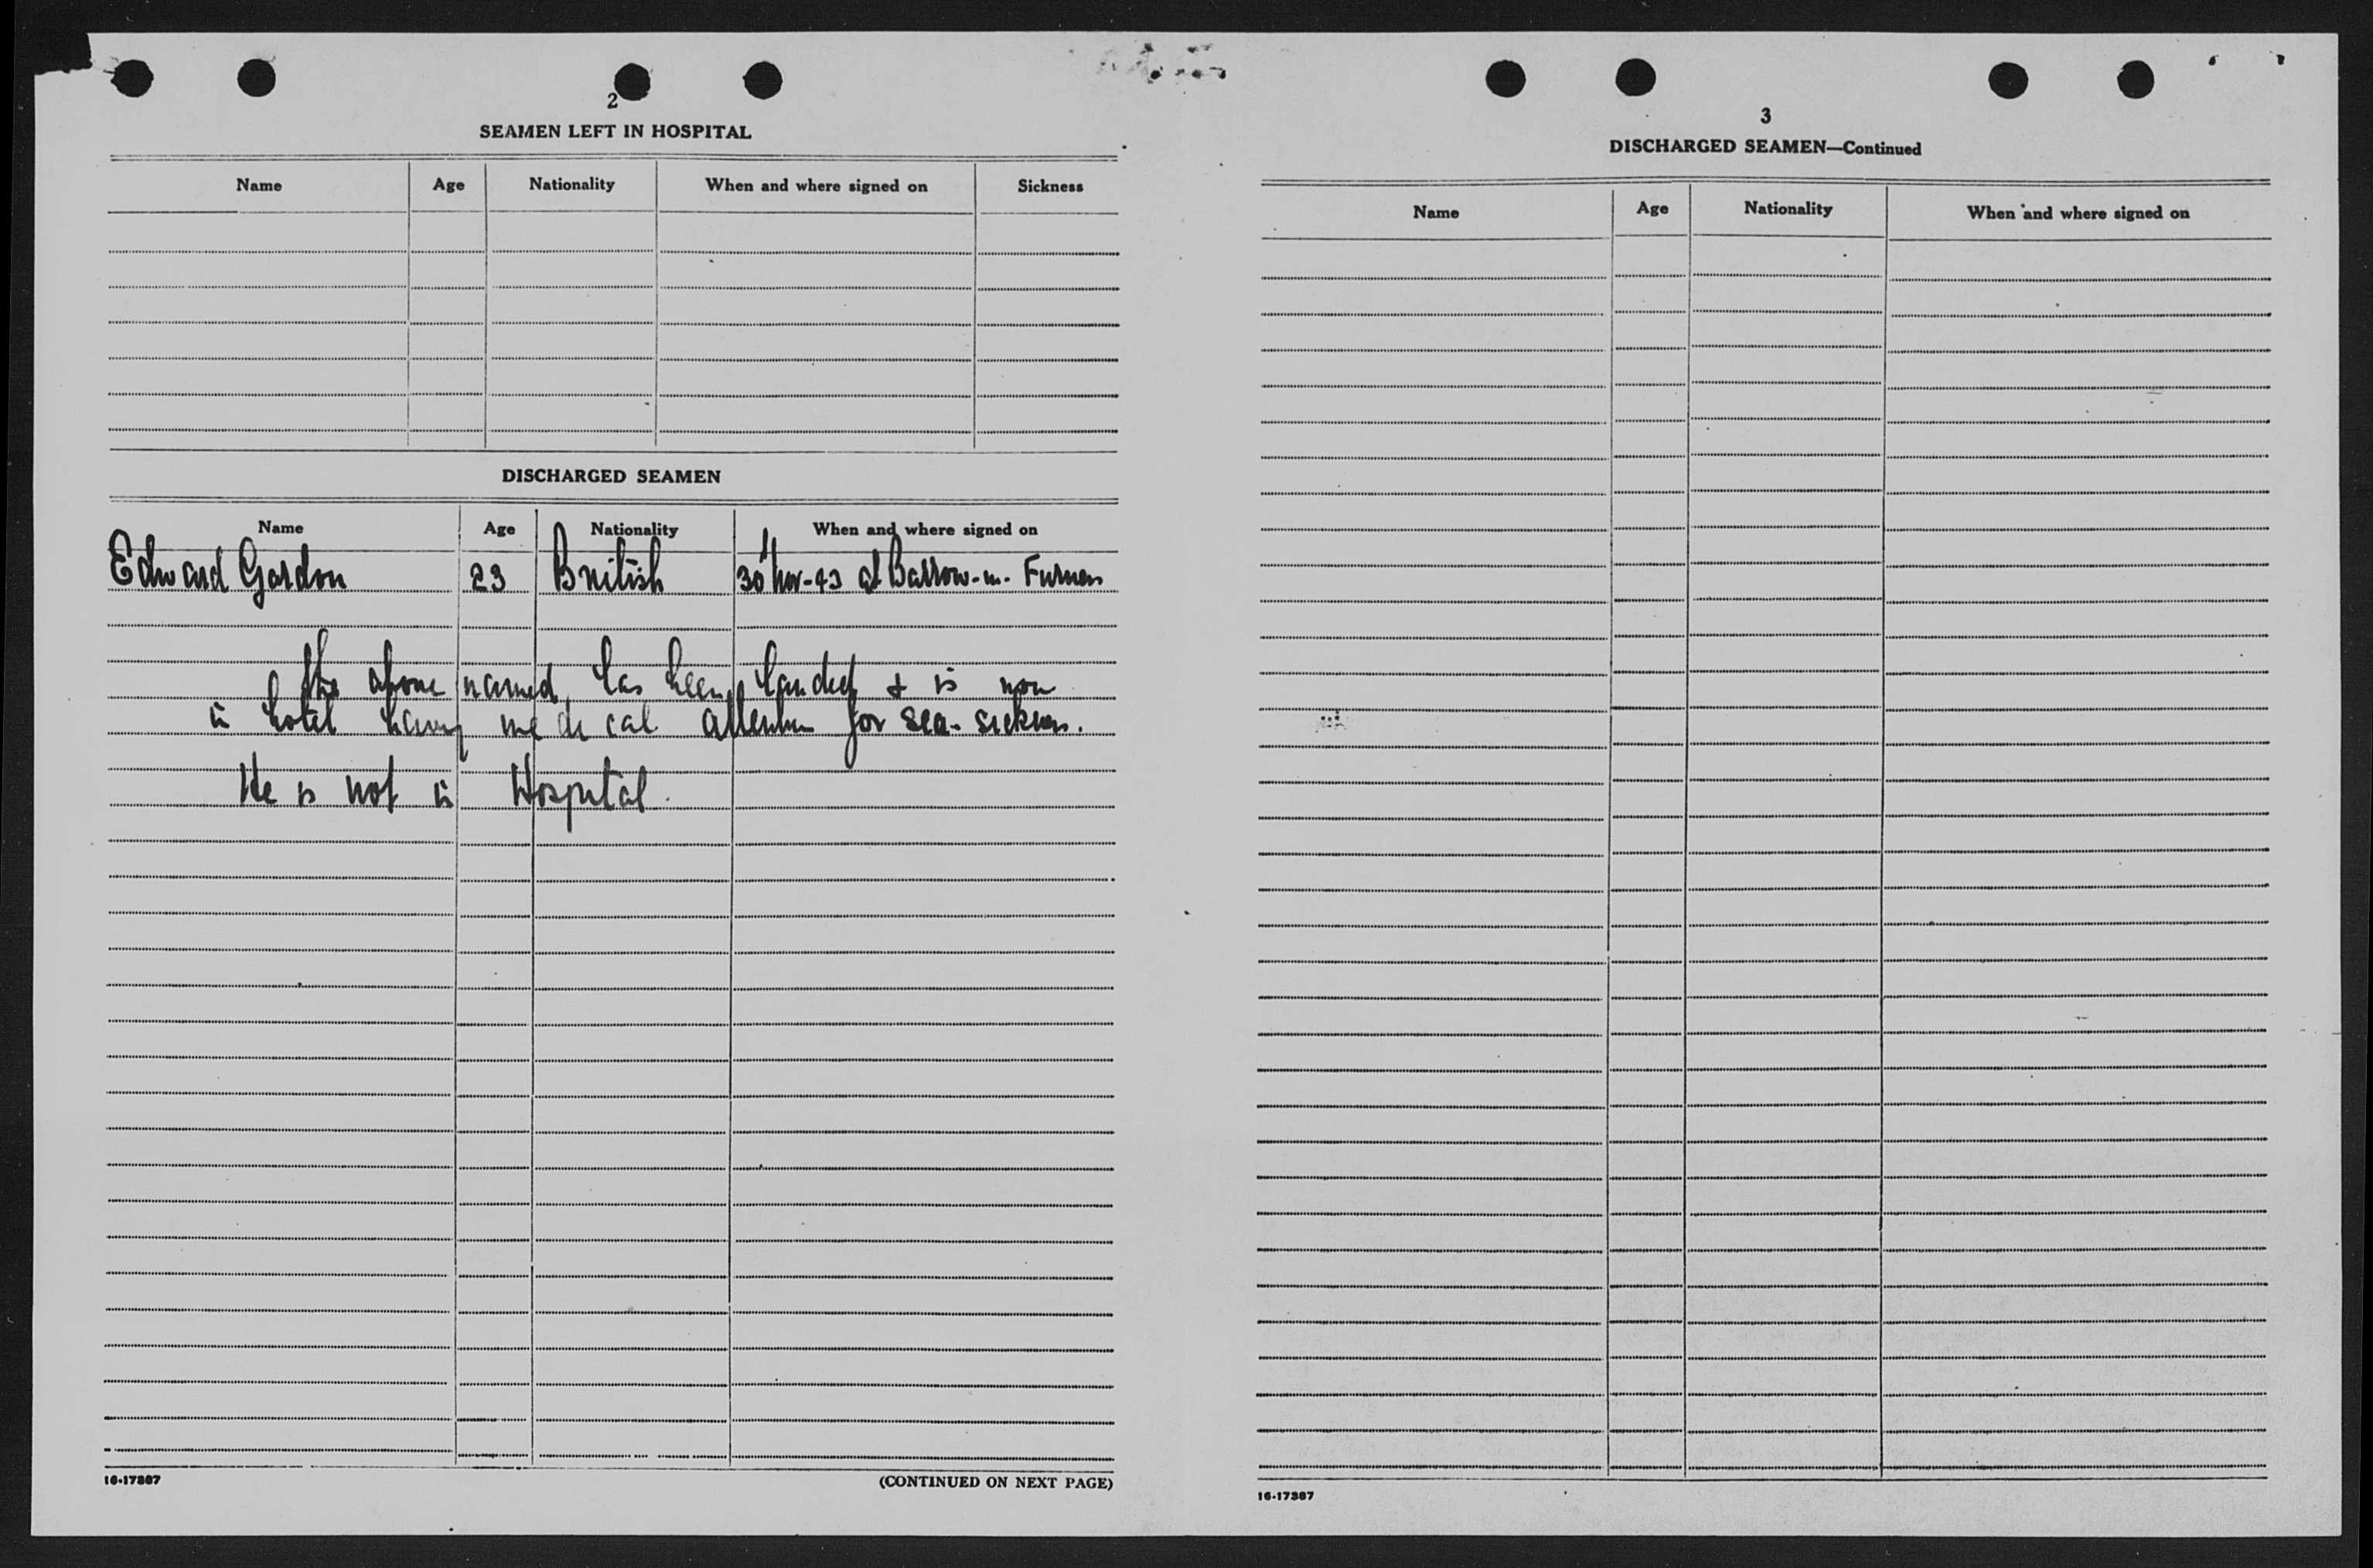 2
SEAMEN LEFT IN HOSPITAL
Name Age Nationality When and where signed on Sickness
DISCHARGED SEAMEN
Name Age Nationality When and where signed on
Edward Gordon 23 British 30 Nov-43 at Barrow-in-Furness
The above named has been landed & is now
in hotel having medical attention for sea-sickness.
He is not in Hospital.
16-17887
(CONTINUED ON NEXT PAGE)
3
DISCHARGED SEAMEN—Continued
Name Age Nationality When and where signed on
16-17387